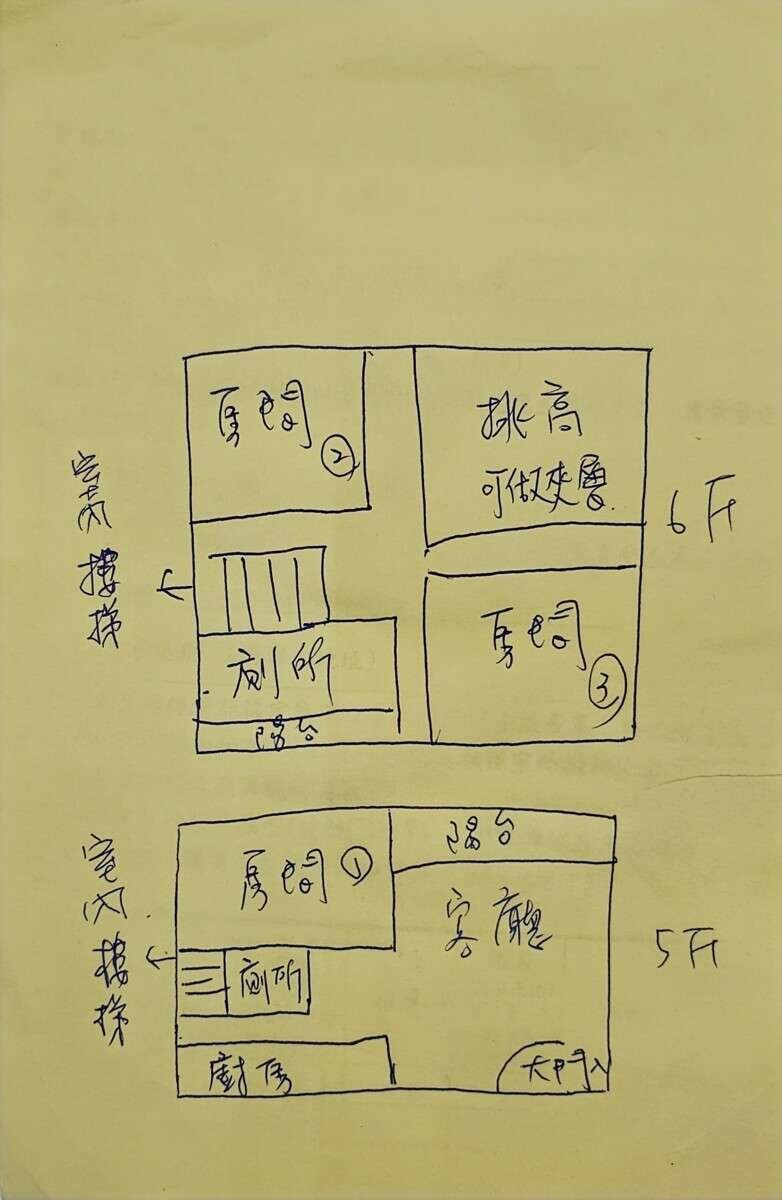 房間
②
挑高
可做夾層
6F
室內樓梯
廁所
陽台
房間
③
房間①
陽台
客廳
5F
室內樓梯
廁所
廚房
大門入